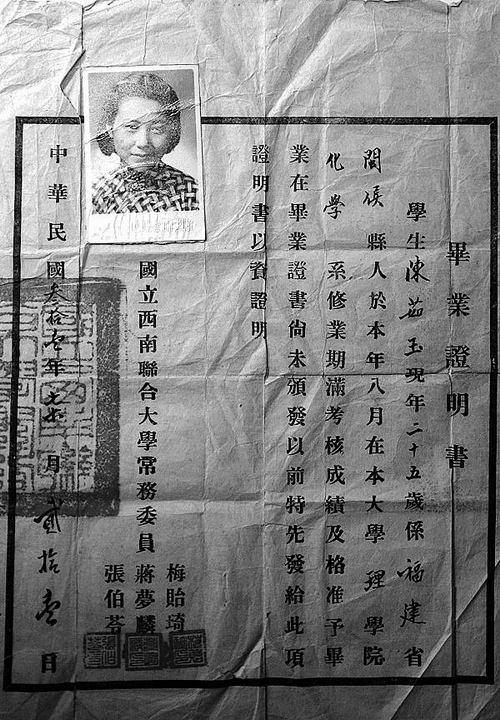 畢業證明書
學生陳茹玉現年二十五歲係福建省
閩侯縣人於本年八月在本大學理學院
化學系修業期滿考核成績及格准予畢
業在畢業證書尚未頒發以前特先發給此項
證明書以資證明
國立西南聯合大學常務委員
梅貽琦
蔣夢麟
張伯苓
中華民國叁拾壹年 月貳拾壹日